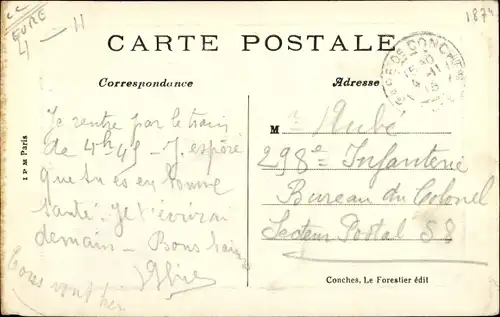 EURE
4-11
1874
CARTE POSTALE
Correspondance
Adresse
Je rentre par le train
de 4h45 - J'espère
que tu es en bonne
santé. Je t'écrirai
demain - Bons baisers
Tous vont bien
M r Aube
298e Infanterie
Bureau du Colonel
Secteur Postal 58
I P M Paris
Conches, Le Forestier édit